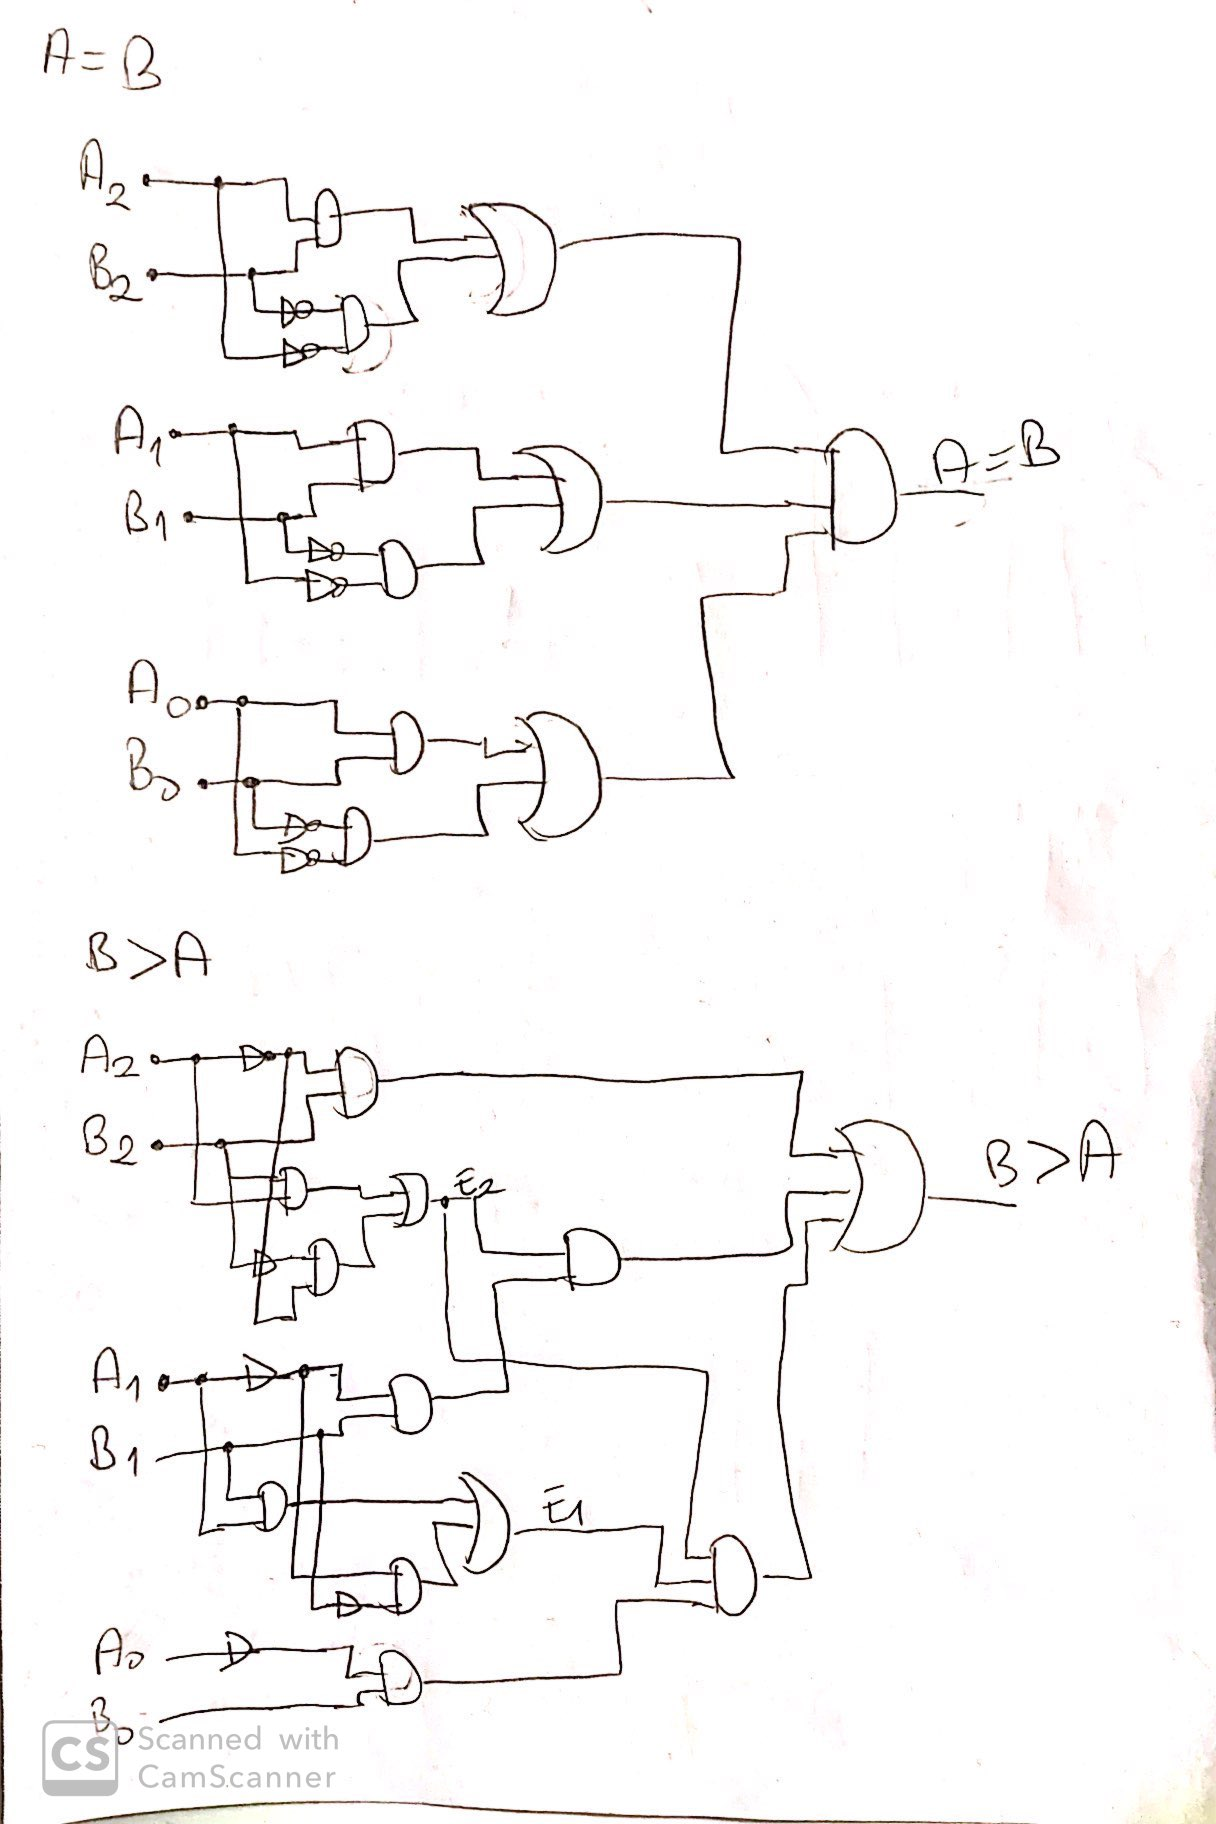 A=B
A2
B2
A1
B1
A=B
A0
B0
B>A
A2
B2
B>A
E2
A1
B1
E1
A0
B0
CS Scanned with
CamScanner